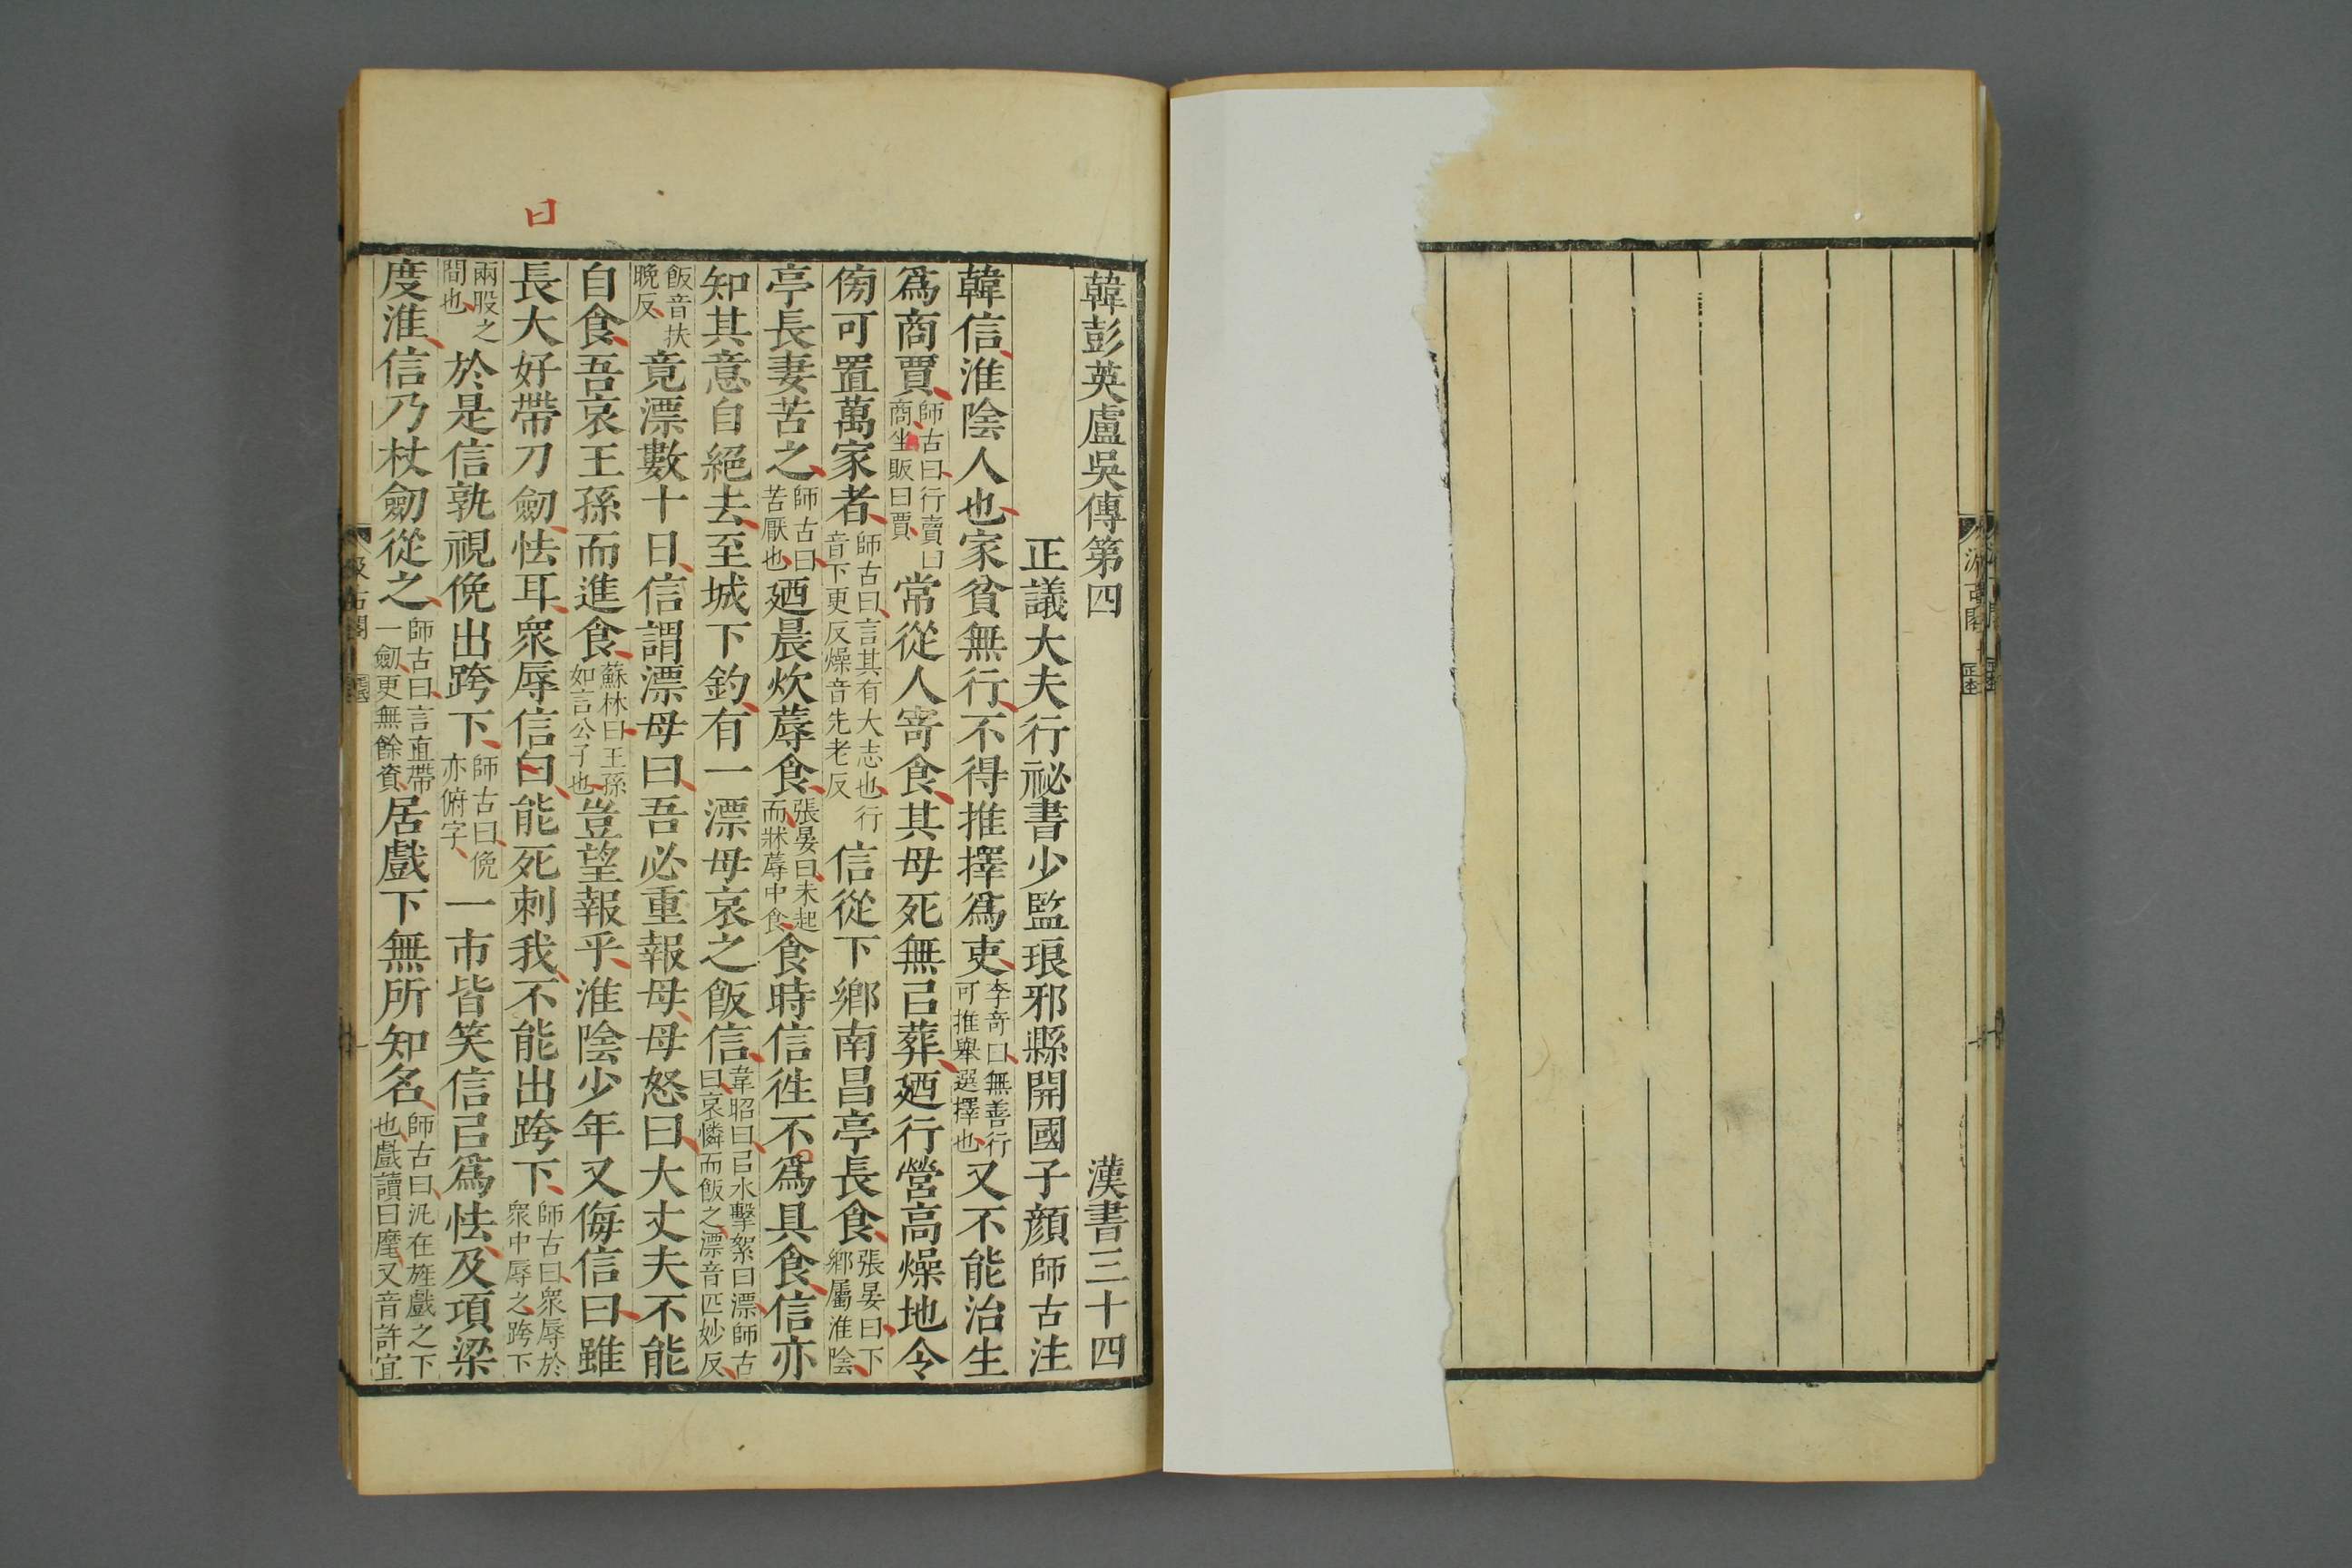 韓彭英盧吳傳第四 漢書三十四
正議大夫行祕書少監琅邪縣開國子顏師古注
韓信淮陰人也家貧無行不得推擇爲吏李奇曰無善行可推舉選擇也又不能治生
爲商賈師古曰行賣曰商坐販曰賈常從人寄食其母死無㠯葬廼行營高燥地令
傍可置萬家者師古曰言其有大志也行音下更反燥音先老反信從下鄉南昌亭長食張晏曰下鄉屬淮陰
亭長妻苦之師古曰苦厭也廼晨炊蓐食張晏曰未起而牀蓐中食食時信往不爲具食信亦
知其意自絕去至城下釣有一漂母哀之飯信韋昭曰㠯水擊絮曰漂師古曰哀憐而飯之漂音匹妙反
飯音扶晚反竟漂數十日信謂漂母曰吾必重報母母怒曰大丈夫不能
自食吾哀王孫而進食蘇林曰王孫如言公子也豈望報乎淮陰少年又侮信曰雖
長大好帶刀劒怯耳衆辱信曰能死刺我不能出跨下師古曰衆辱於衆中辱之跨下
兩股之間也於是信孰視俛出跨下師古曰俛亦俯字一市皆笑信㠯爲怯及項梁
度淮信乃杖劒從之師古曰言直帶一劒更無餘資居戲下無所知名師古曰汎在旌戲之下也戲讀曰麾又音許宜
曰
汲古閣